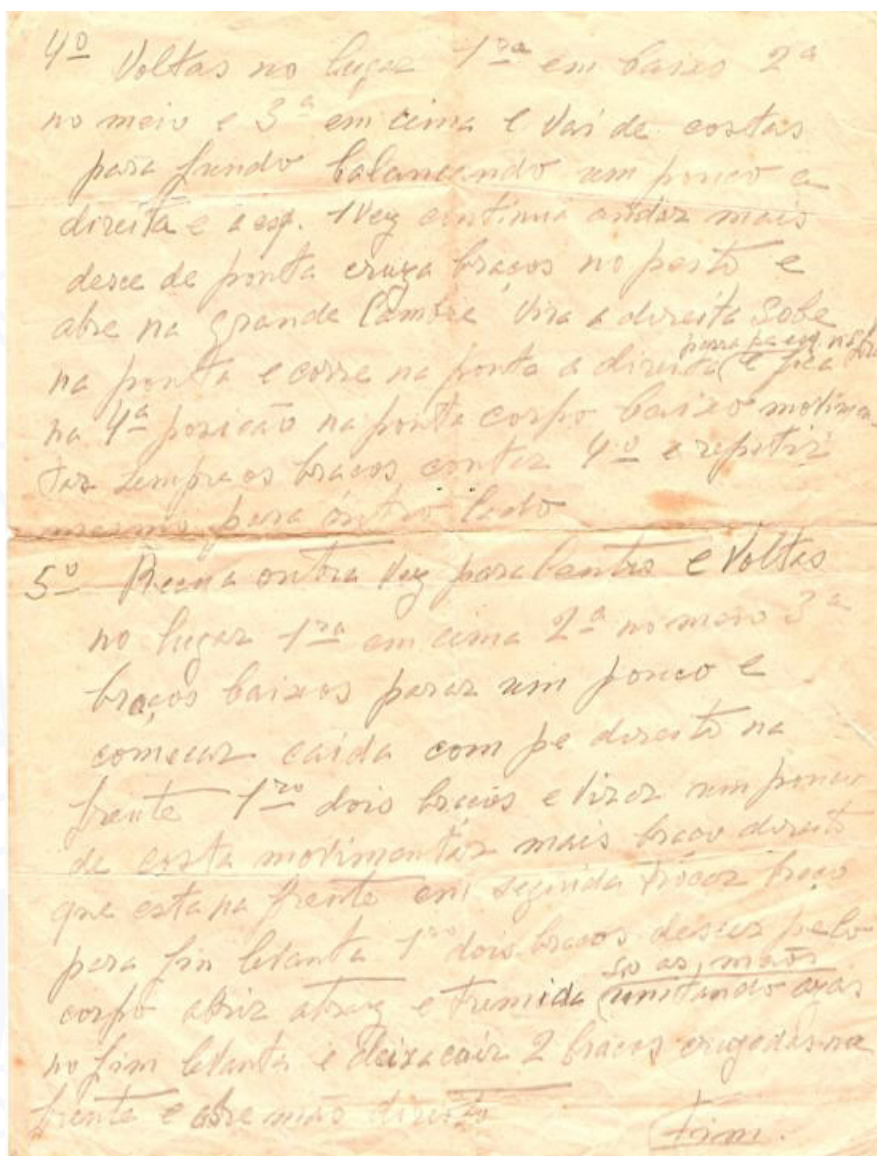 4º Voltas no lugar 1ra em baixo 2ª
no meio e 3ª em cima e vai de costas
para fundo balanceando um pouco a
direita e a esq. 1 vez continua andar mais
desce de ponta cruza braços no peito e
abre na grande Cambre, vira a direita sobe
na ponta e corre na ponta a direita (e fica
perna pa esq. na
na 4ª posicão na ponta corpo baixo movimen-
tar sempre os braços contar 4º e repitir
mesmo para outro lado
5º Recua outra vez para e voltas
no lugar 1ra em cima 2ª no meio 3ª
braços baixos parar um pouco e
começar caida com pe direito na
frente 1ro dois braços e virar um pouco
de costa movimentar mais braço direito
que esta na frente em seguida trocar braço
para fin levanta 1ro dois braços descer pelo
corpo abrir atraz e tremida (imitando azas
so as mãos
no fim levanta e deixa cair 2 braços cruzados na
frente e abre mão direito
Fim.